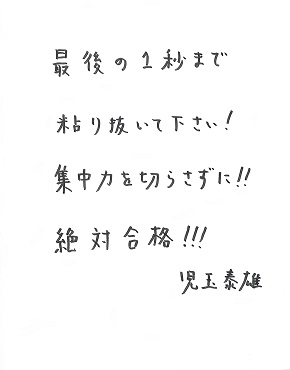 最後の1秒まで
粘り抜いて下さい!
集中力を切らさずに!!
絶対合格!!!
児玉泰雄